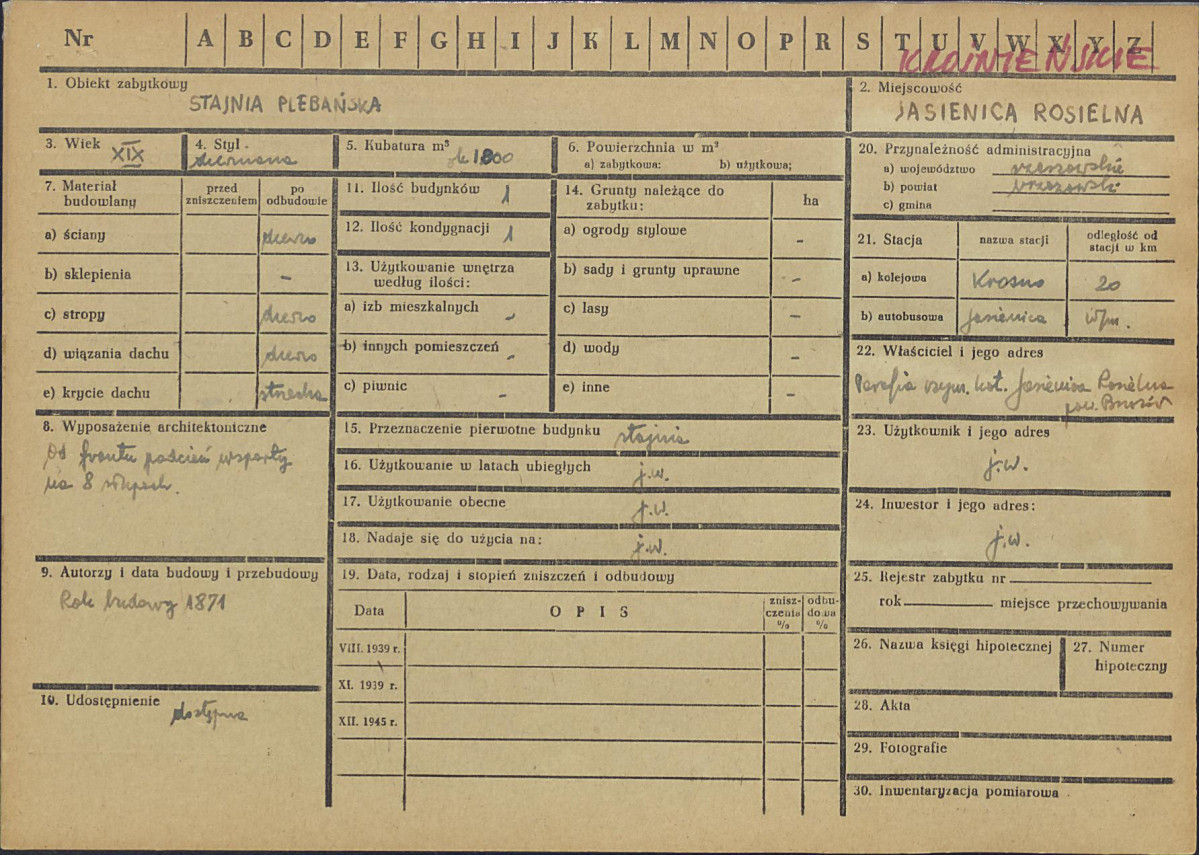 Nr A B C D E F G H I J K L M N O P R S T U V W X Y Z
KROŚNIEŃSKIE
1. Obiekt zabytkowy
STAJNIA PLEBAŃSKA
2. Miejscowość
JASIENICA ROSIELNA
3. Wiek XIX
4. Styl drewniana
5. Kubatura m³ ok 1.800
6. Powierzchnia w m²
a) zabytkowa: b) użytkowa;
7. Materiał budowlany
przed zniszczeniem
po odbudowie
a) ściany drewno
b) sklepienia –
c) stropy drewno
d) wiązania dachu drewno
e) krycie dachu strzecha
8. Wyposażenie architektoniczne
Od frontu podcień wsparty
na 8 słupach.
9. Autorzy i data budowy i przebudowy
Rok budowy 1871
10. Udostępnienie dostępna
11. Ilość budynków 1
12. Ilość kondygnacji 1
13. Użytkowanie wnętrza
według ilości:
a) izb mieszkalnych –
b) innych pomieszczeń –
c) piwnic –
14. Grunty należące do
zabytku: ha
a) ogrody stylowe –
b) sady i grunty uprawne –
c) lasy –
d) wody –
e) inne –
15. Przeznaczenie pierwotne budynku stajnia
16. Użytkowanie w latach ubiegłych j.w.
17. Użytkowanie obecne j.w.
18. Nadaje się do użycia na: j.w.
19. Data, rodzaj i stopień zniszczeń i odbudowy
Data OPIS
znisz-
czenia
%
odbu-
dowa
%
VIII. 1939 r.
XI. 1939 r.
XII. 1945 r.
20. Przynależność administracyjna
a) województwo rzeszowskie
b) powiat brzozowski
c) gmina
21. Stacja
nazwa stacji
odległość od
stacji w km
a) kolejowa Krosno 20
b) autobusowa Jasienica w/m.
22. Właściciel i jego adres
Parafia rzym. kat. Jasienica Rosielna
pow. Brzozów
23. Użytkownik i jego adres
j.w.
24. Inwestor i jego adres:
j.w.
25. Rejestr zabytku nr
rok miejsce przechowywania
26. Nazwa księgi hipotecznej
27. Numer
hipoteczny
28. Akta
29. Fotografie
30. Inwentaryzacja pomiarowa